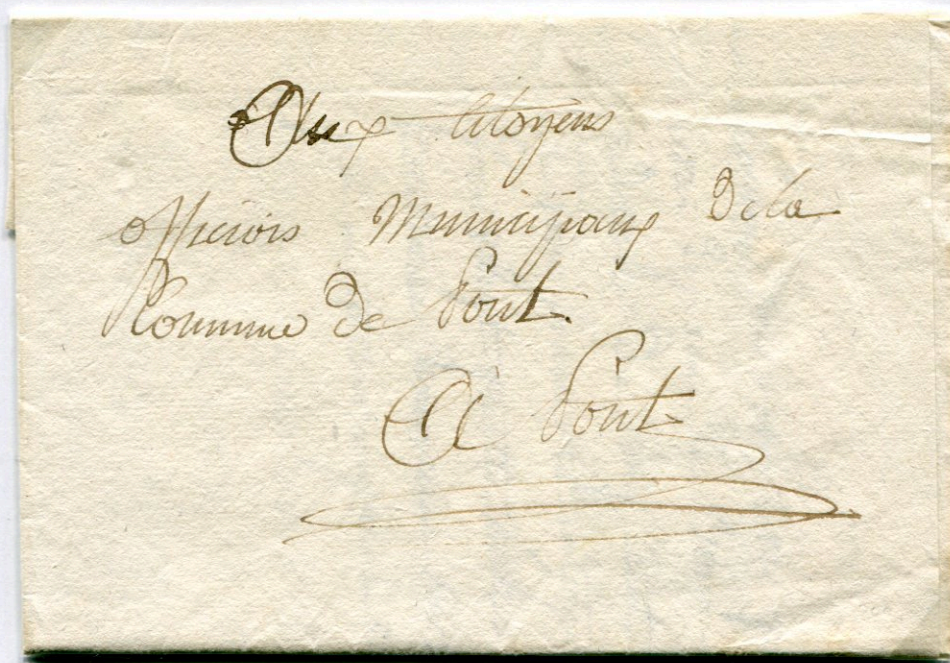 Aux Citoyens
officiers Municipaux De la
Commune De Pont.
A Pont